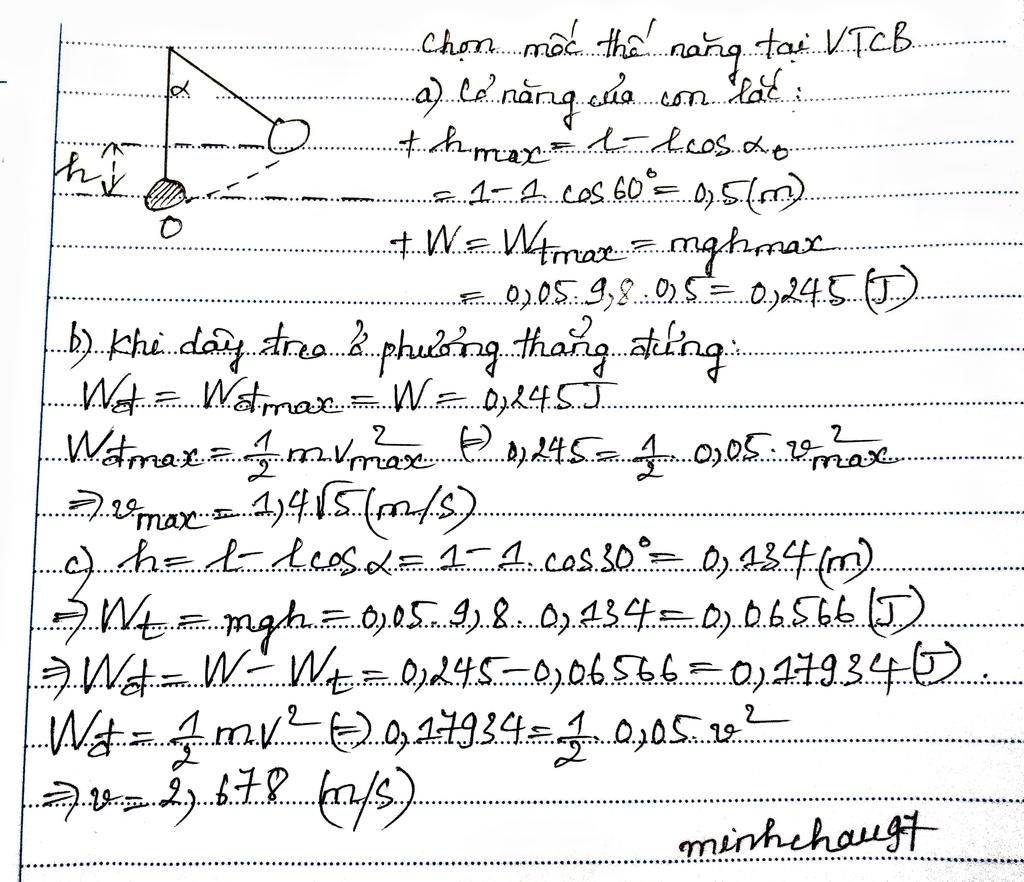 Chọn mốc thế năng tại VTCB
α
a) Cơ năng của con lắc:
h
+ hmax = l - l cos α₀
= 1 - 1 cos 60° = 0,5 (m)
O
+ W = Wtmax = mghmax
= 0,05. 9,8 . 0,5 = 0,245 (J)
b) Khi dây treo ở phương thẳng đứng:
Wđ = Wđmax = W = 0,245J
Wđmax = 1/2 mv²max (=) 0,245 = 1/2. 0,05. v²max
⇒ vmax = 1,4√5 (m/s)
c) h = l - l cos α = 1 - 1. cos 30° = 0,134 (m)
⇒ Wt = mgh = 0,05. 9,8. 0,134 = 0,06566 (J)
⇒ Wđ = W - Wt = 0,245 - 0,06566 = 0,17934 (J) .
Wđ = 1/2 mv² (=) 0,17934 = 1/2. 0,05. v²
⇒ v = 2,678 (m/s)
minhchau97